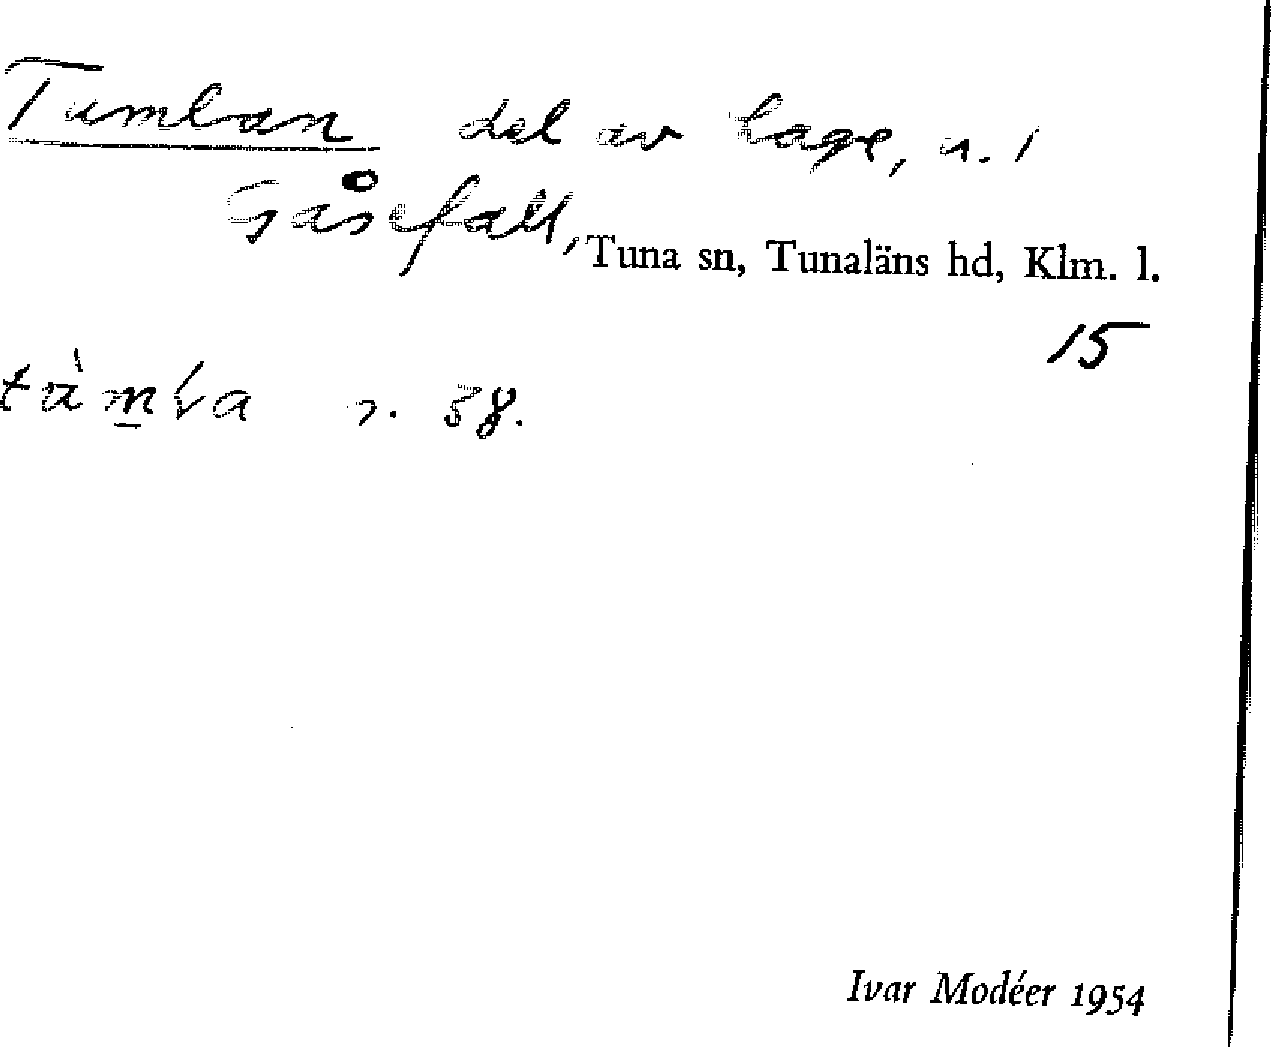 Tumban del av hage, n. 1
Gåsefall, Tuna sn, Tunaläns hd, Klm. l.
15
s. 38.
Ivar Modéer 1954